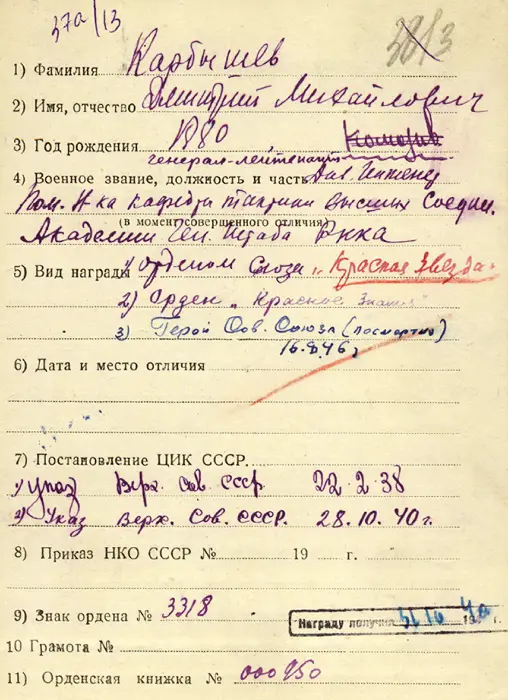 37а/13
1) Фамилия Карбышев
2) Имя, отчество Дмитрий Михайлович
3) Год рождения 1880,
генерал-лейтенант
4) Военное звание, должность и часть
Пом. Н-ка кафедры тактики высших Соедин.
(в момент совершенного отличия)
Академии Ген. Штаба РККА
5) Вид награды 1) орденом Союза „Красная Звезда"
2) Орден „Красное Знамя"
3) Герой Сов. Союза (посмертно)
16.8.46 г
6) Дата и место отличия
7) Постановление ЦИК СССР.
1) Указ Верх. Сов. СССР 22.2.38
2) Указ Верх. Сов. СССР. 28.10.40 г.
8) Приказ НКО СССР № 19 г.
9) Знак ордена № 3318
Награду получил
10 Грамота №
11) Орденская книжка № 000950